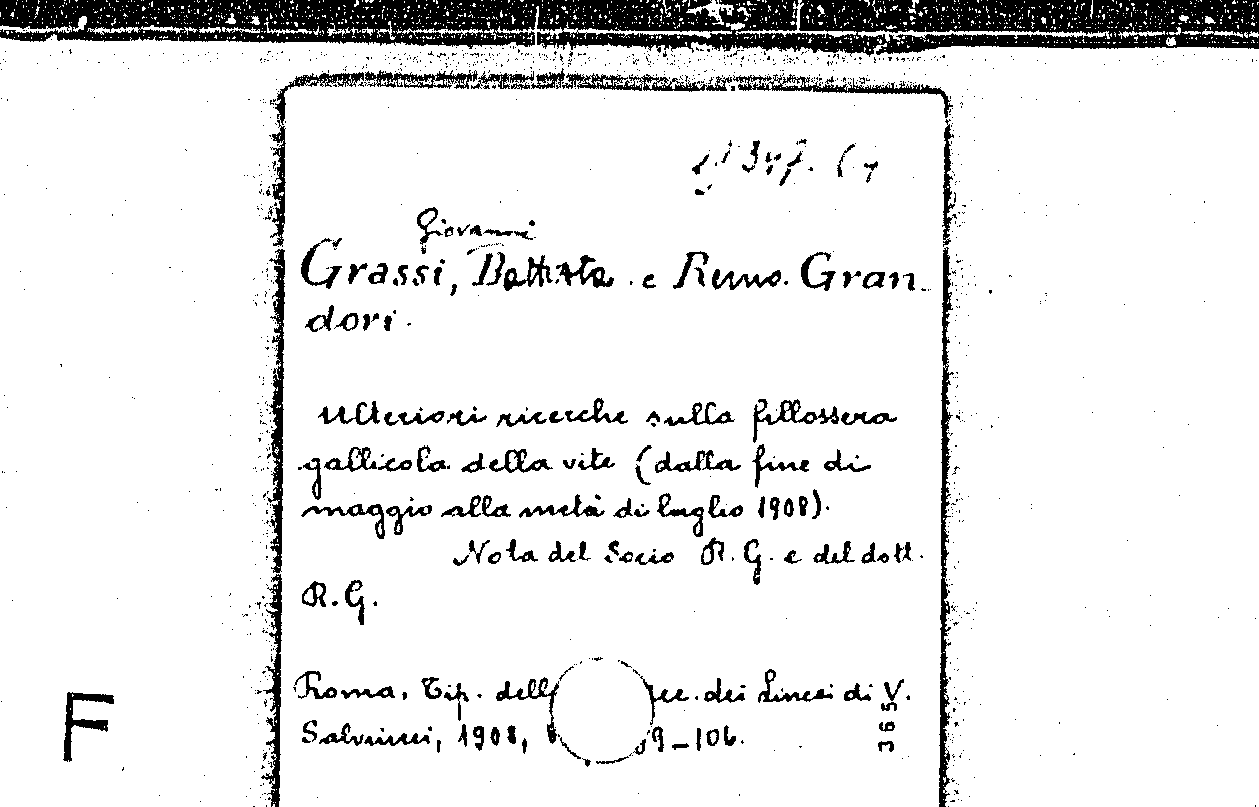 Giovanni
Grassi, Battista e Remo Gran-
dori.
Ulteriori ricerche sulla fillossera
gallicola della vite (dalla fine di
maggio alla metà di luglio 1908).
Nota del Socio R. G. e del dott.
R. G.
Roma, Tip. dell cc. dei Lincei di V.
Salviucci, 1908, 9-106.
365
F